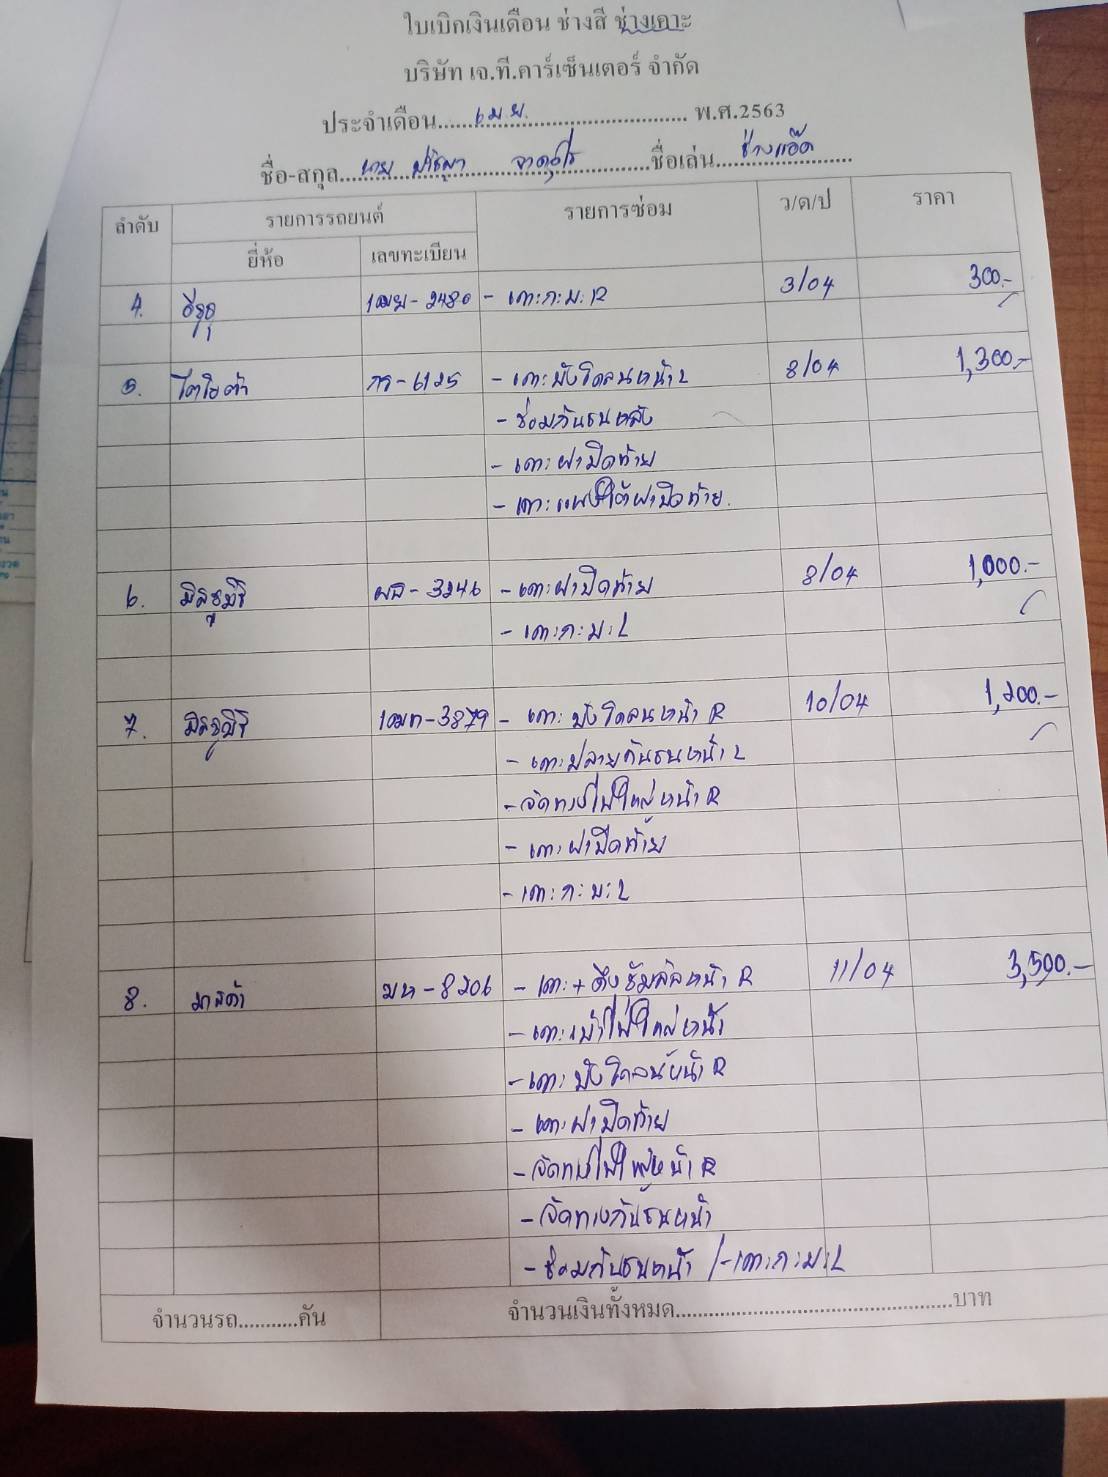 ใบเบิกเงินเดือน ช่างสี ช่างเคาะ
บริษัท เจ.ที.คาร์เซ็นเตอร์ จำกัด
ประจำเดือน.....เม.ย......... พ.ศ.2563
ชื่อ-สกุล....นาย ปรัชญา.........ชื่อเล่น....ช่างแอ๊ด....
ลำดับ รายการรถยนต์ รายการซ่อม ว/ด/ป ราคา
ยี่ห้อ เลขทะเบียน
4. อีซูซุ 1ฒฆ-2480 - เคาะก.ม.R 3/04 300.-
5. โตโยต้า กร-6125 - เคาะบังโคลนหน้า L 8/04 1,300.-
- ซ่อมกันชนหลัง
- เคาะฝาปิดท้าย
- เคาะแผงใต้ฝาปิดท้าย.
6. มิตซูบิชิ ผฉ-3246 - เคาะฝาปิดท้าย 8/04 1,000.-
- เคาะก.ม.L
7. มิตซูบิชิ 1ฒก-3879 - เคาะบังโคลนหน้า R 10/04 1,200.-
- เคาะปลายกันชนหน้า L
- จัดทางไฟใหญ่หน้า R
- เคาะฝาปิดท้าย
- เคาะก.ม.L
8. มาสด้า มห-8206 - เคาะ+ดึงซัมลัสหน้า R 11/04 3,500.-
- เคาะเบ้าไฟใหญ่หน้า
- เคาะบังโคลนหน้า R
- เคาะฝาปิดท้าย
- จัดทางไฟใหญ่หน้า R
- จัดทางกันชนหน้า
- ซ่อมกันชนหน้า /-เคาะก.ม.L
จำนวนรถ...........คัน จำนวนเงินทั้งหมด..................................................บาท